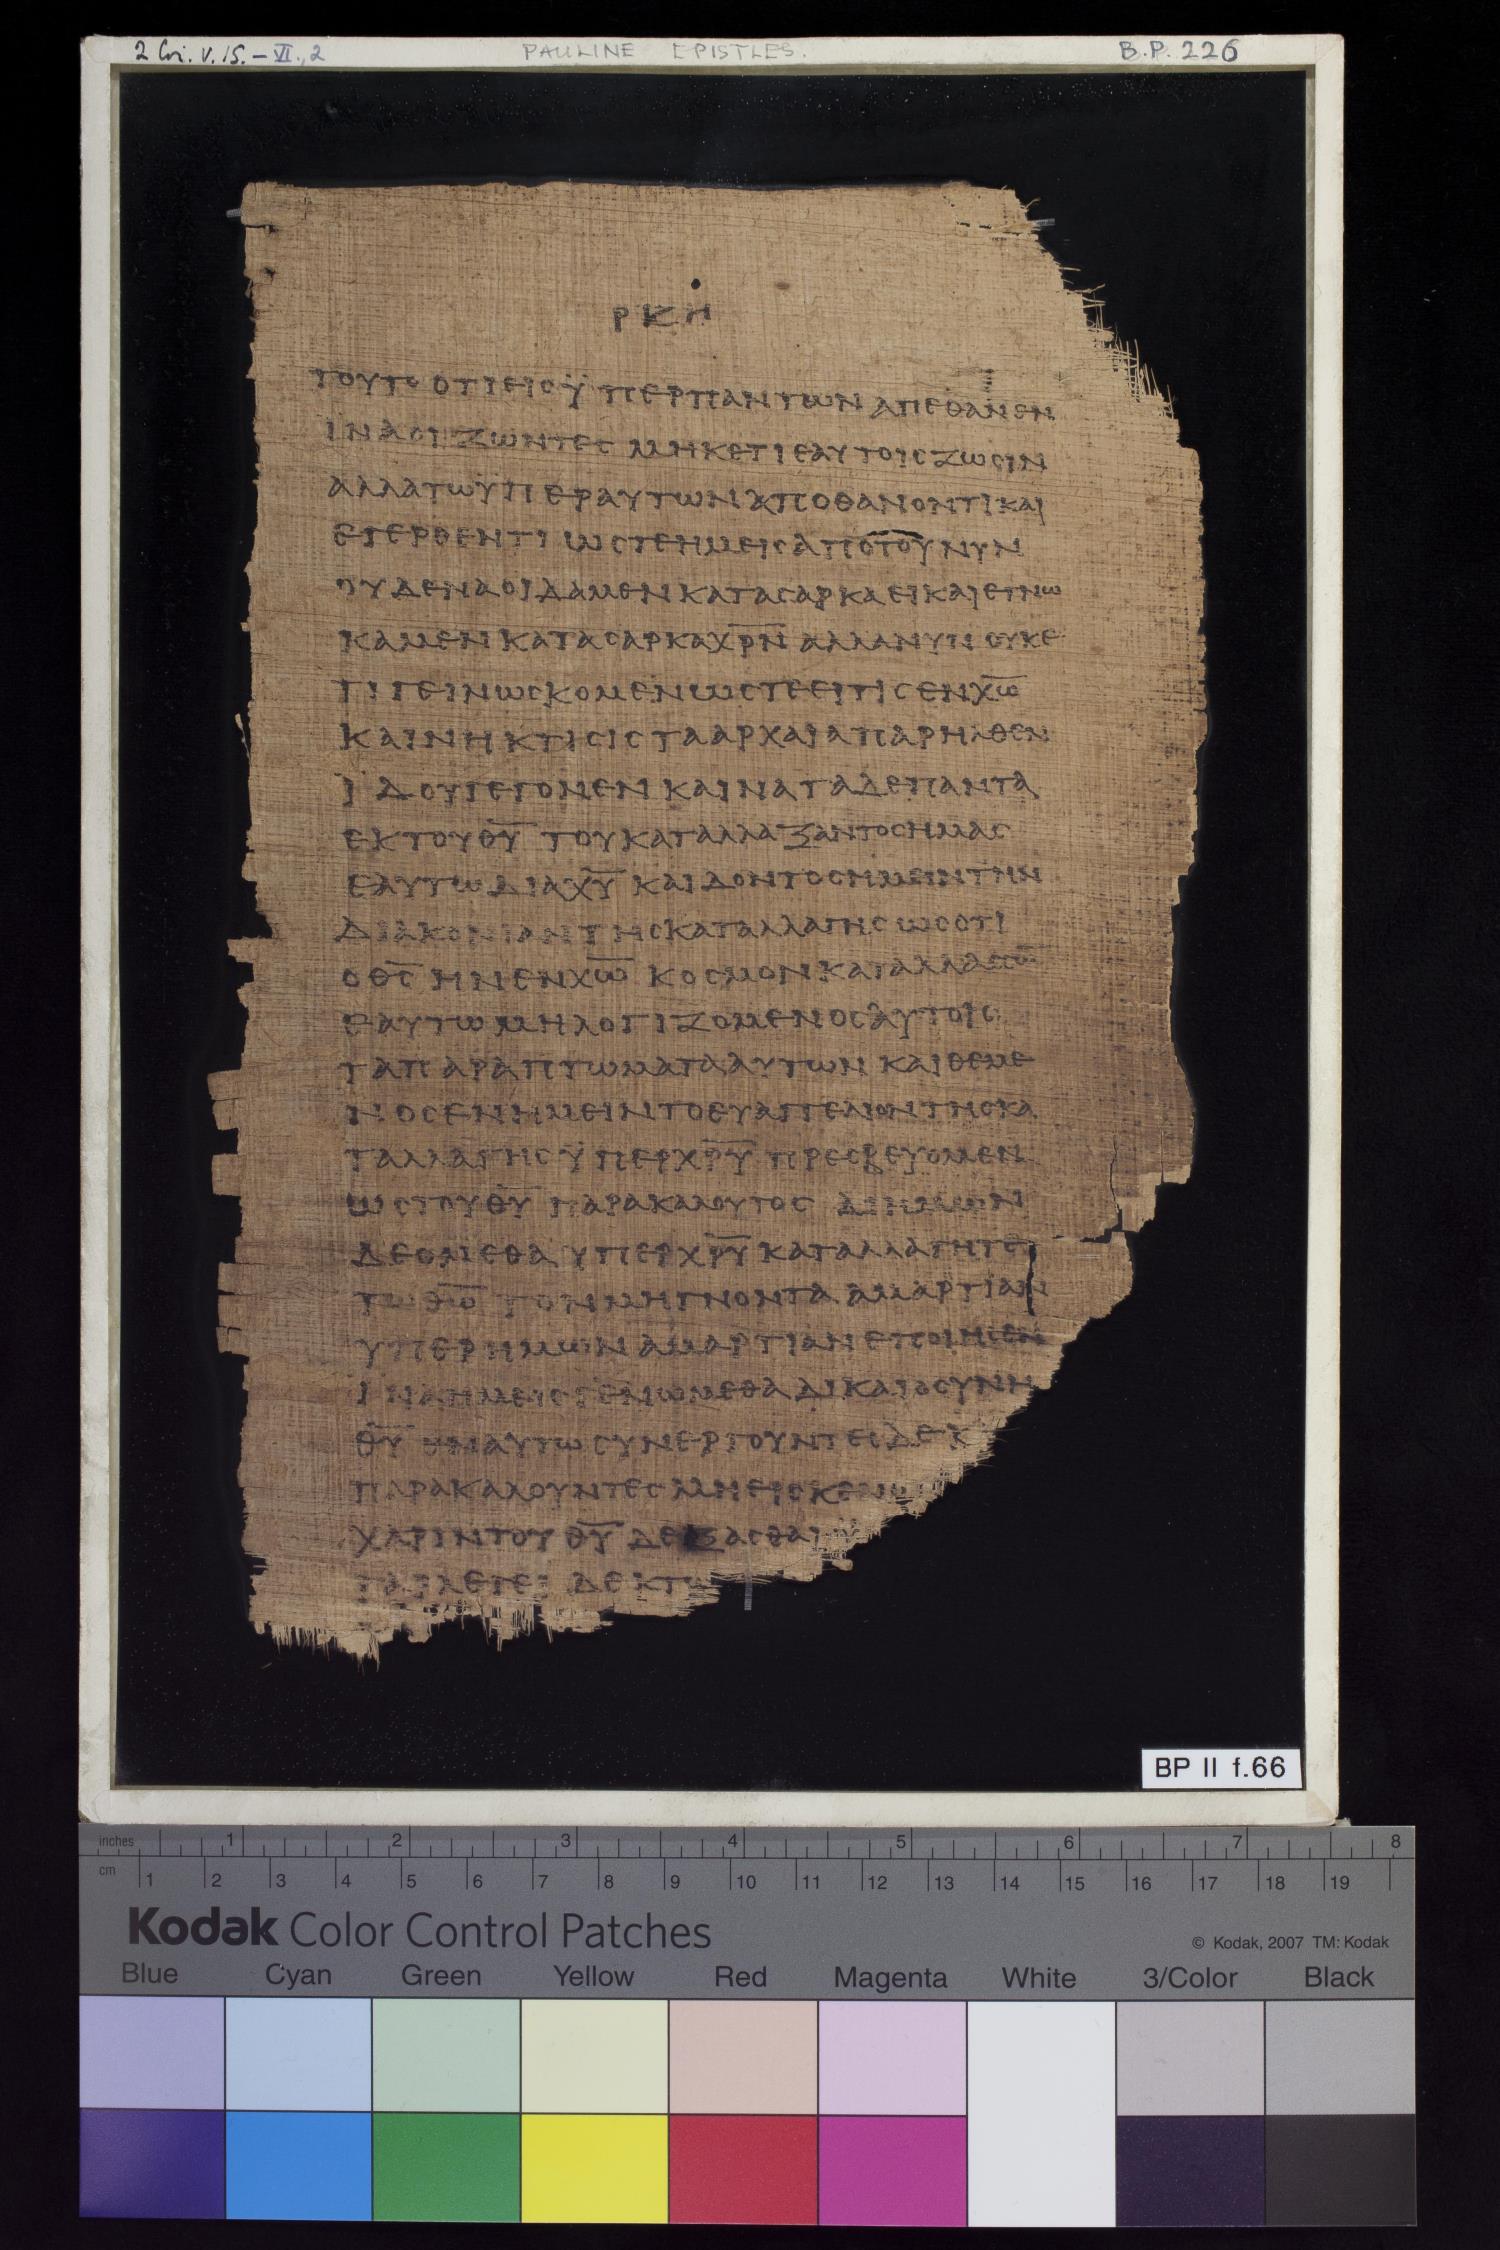 2 Cor. V. 15. – VI., 2 PAULINE EPISTLES. B.P. 226
ΡΚΗ
ΤΟΥΤΟ ΟΤΙ ΕΙΣ Ϋ̈ΠΕΡ ΠΑΝΤΩΝ ΑΠΕΘΑΝΕΝ
ΙΝΑ ΟΙ ΖΩΝΤΕϹ ΜΗΚΕΤΙ ΕΑΥΤΟΙϹ ΖΩϹΙΝ
ΑΛΛΑ ΤΩ ΫΠΕΡ ΑΥΤΩΝ ΑΠΟΘΑΝΟΝΤΙ ΚΑΙ
ΕΓΕΡΘΕΝΤΙ ΩϹΤΕ ΗΜΕΙϹ ΑΠΟ ΤΟΥ ΝΥΝ
ΟΥΔΕΝΑ ΟΙΔΑΜΕΝ ΚΑΤΑ ϹΑΡΚΑ ΕΙ ΚΑΙ ΕΓΝΩ
ΚΑΜΕΝ ΚΑΤΑ ϹΑΡΚΑ ΧΡ̅Ν̅ ΑΛΛΑ ΝΥΝ ΟΥΚΕ
ΤΙ ΓΕΙΝΩϹΚΟΜΕΝ ΩϹΤΕ ΕΙ ΤΙϹ ΕΝ ΧΩ̅
ΚΑΙΝΗ ΚΤΙϹΙϹ ΤΑ ΑΡΧΑΙΑ ΠΑΡΗΛΘΕΝ
ΪΔΟΥ ΓΕΓΟΝΕΝ ΚΑΙΝΑ ΤΑ ΔΕ ΠΑΝΤΑ
ΕΚ ΤΟΥ ΘΥ̅ ΤΟΥ ΚΑΤΑΛΛΑΞΑΝΤΟϹ ΗΜΑϹ
ΕΑΥΤΩ ΔΙΑ ΧΥ̅ ΚΑΙ ΔΟΝΤΟϹ ΗΜΕΙΝ ΤΗΝ
ΔΙΑΚΟΝΙΑΝ ΤΗϹ ΚΑΤΑΛΛΑΓΗϹ ΩϹ ΟΤΙ
Ο ΘϹ̅ ΗΝ ΕΝ ΧΩ̅ ΚΟϹΜΟΝ ΚΑΤΑΛΛΑϹϹΩ̅
ΕΑΥΤΩ ΜΗ ΛΟΓΙΖΟΜΕΝΟϹ ΑΥΤΟΙϹ
ΤΑ ΠΑΡΑΠΤΩΜΑΤΑ ΑΥΤΩΝ ΚΑΙ ΘΕΜΕ
ΝΟϹ ΕΝ ΗΜΕΙΝ ΤΟ ΕΥΑΓΓΕΛΙΟΝ ΤΗϹ ΚΑ
ΤΑΛΛΑΓΗϹ ΫΠΕΡ ΧΡ̅Υ̅ ΠΡΕϹΒΕΥΟΜΕΝ
ΩϹ ΤΟΥ ΘΥ̅ ΠΑΡΑΚΑΛΟΥΤΟϹ ΔΙ ΗΜΩΝ
ΔΕΟΜΕΘΑ ΥΠΕΡ ΧΡ̅Υ̅ ΚΑΤΑΛΛΑΓΗΤΕ
ΤΩ ΘΩ̅ ΤΟΝ ΜΗ ΓΝΟΝΤΑ ΑΜΑΡΤΙΑΝ
ΥΠΕΡ ΗΜΩΝ ΑΜΑΡΤΙΑΝ ΕΠΟΙΗϹΕΝ
ΙΝΑ ΗΜΕΙϹ ΓΕΝΩΜΕΘΑ ΔΙΚΑΙΟϹΥΝΗ
ΘΥ̅ ΕΝ ΑΥΤΩ ϹΥΝΕΡΓΟΥΝΤΕϹ ΔΕ Κ
ΠΑΡΑΚΑΛΟΥΝΤΕϹ ΜΗ ΕΙϹ ΚΕΝ
ΧΑΡΙΝ ΤΟΥ ΘΥ̅ ΔΕΞΑϹΘΑΙ Ϋ
ΓΑΡ ΛΕΓΕΙ ΔΕΚΤΩ
BP II f.66
inches 1 2 3 4 5 6 7 8
cm 1 2 3 4 5 6 7 8 9 10 11 12 13 14 15 16 17 18 19
Kodak Color Control Patches
© Kodak, 2007 TM: Kodak
Blue Cyan Green Yellow Red Magenta White 3/Color Black